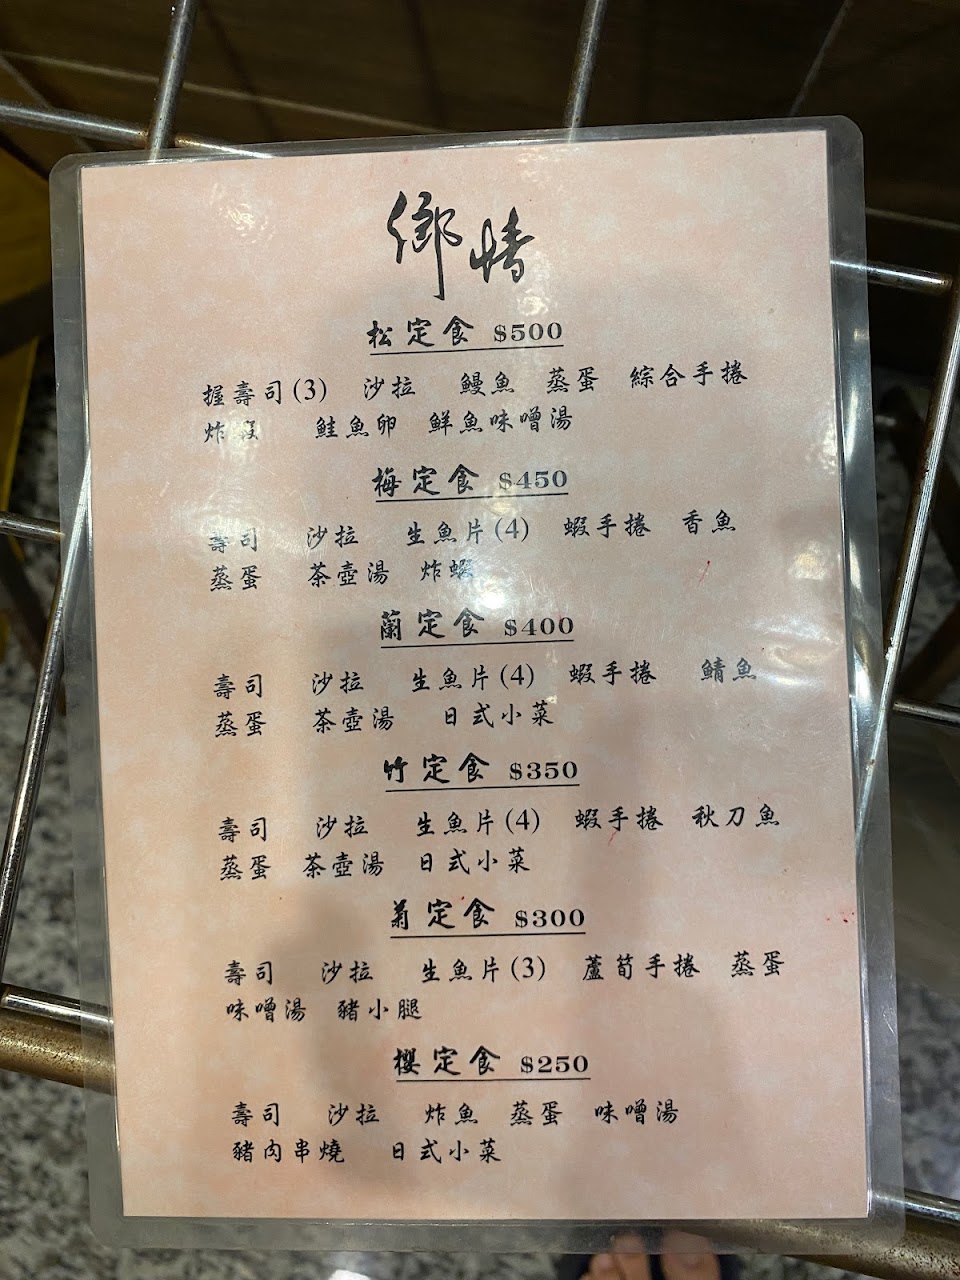 鄉情
松定食 $500
握壽司(3) 沙拉 鰻魚 蒸蛋 綜合手捲
炸蝦 鮭魚卵 鮮魚味噌湯
梅定食 $450
壽司 沙拉 生魚片(4) 蝦手捲 香魚
蒸蛋 茶壺湯 炸蝦
蘭定食 $400
壽司 沙拉 生魚片(4) 蝦手捲 鯖魚
蒸蛋 茶壺湯 日式小菜
竹定食 $350
壽司 沙拉 生魚片(4) 蝦手捲 秋刀魚
蒸蛋 茶壺湯 日式小菜
菊定食 $300
壽司 沙拉 生魚片(3) 蘆筍手捲 蒸蛋
味噌湯 豬小腿
櫻定食 $250
壽司 沙拉 炸魚 蒸蛋 味噌湯
豬肉串燒 日式小菜